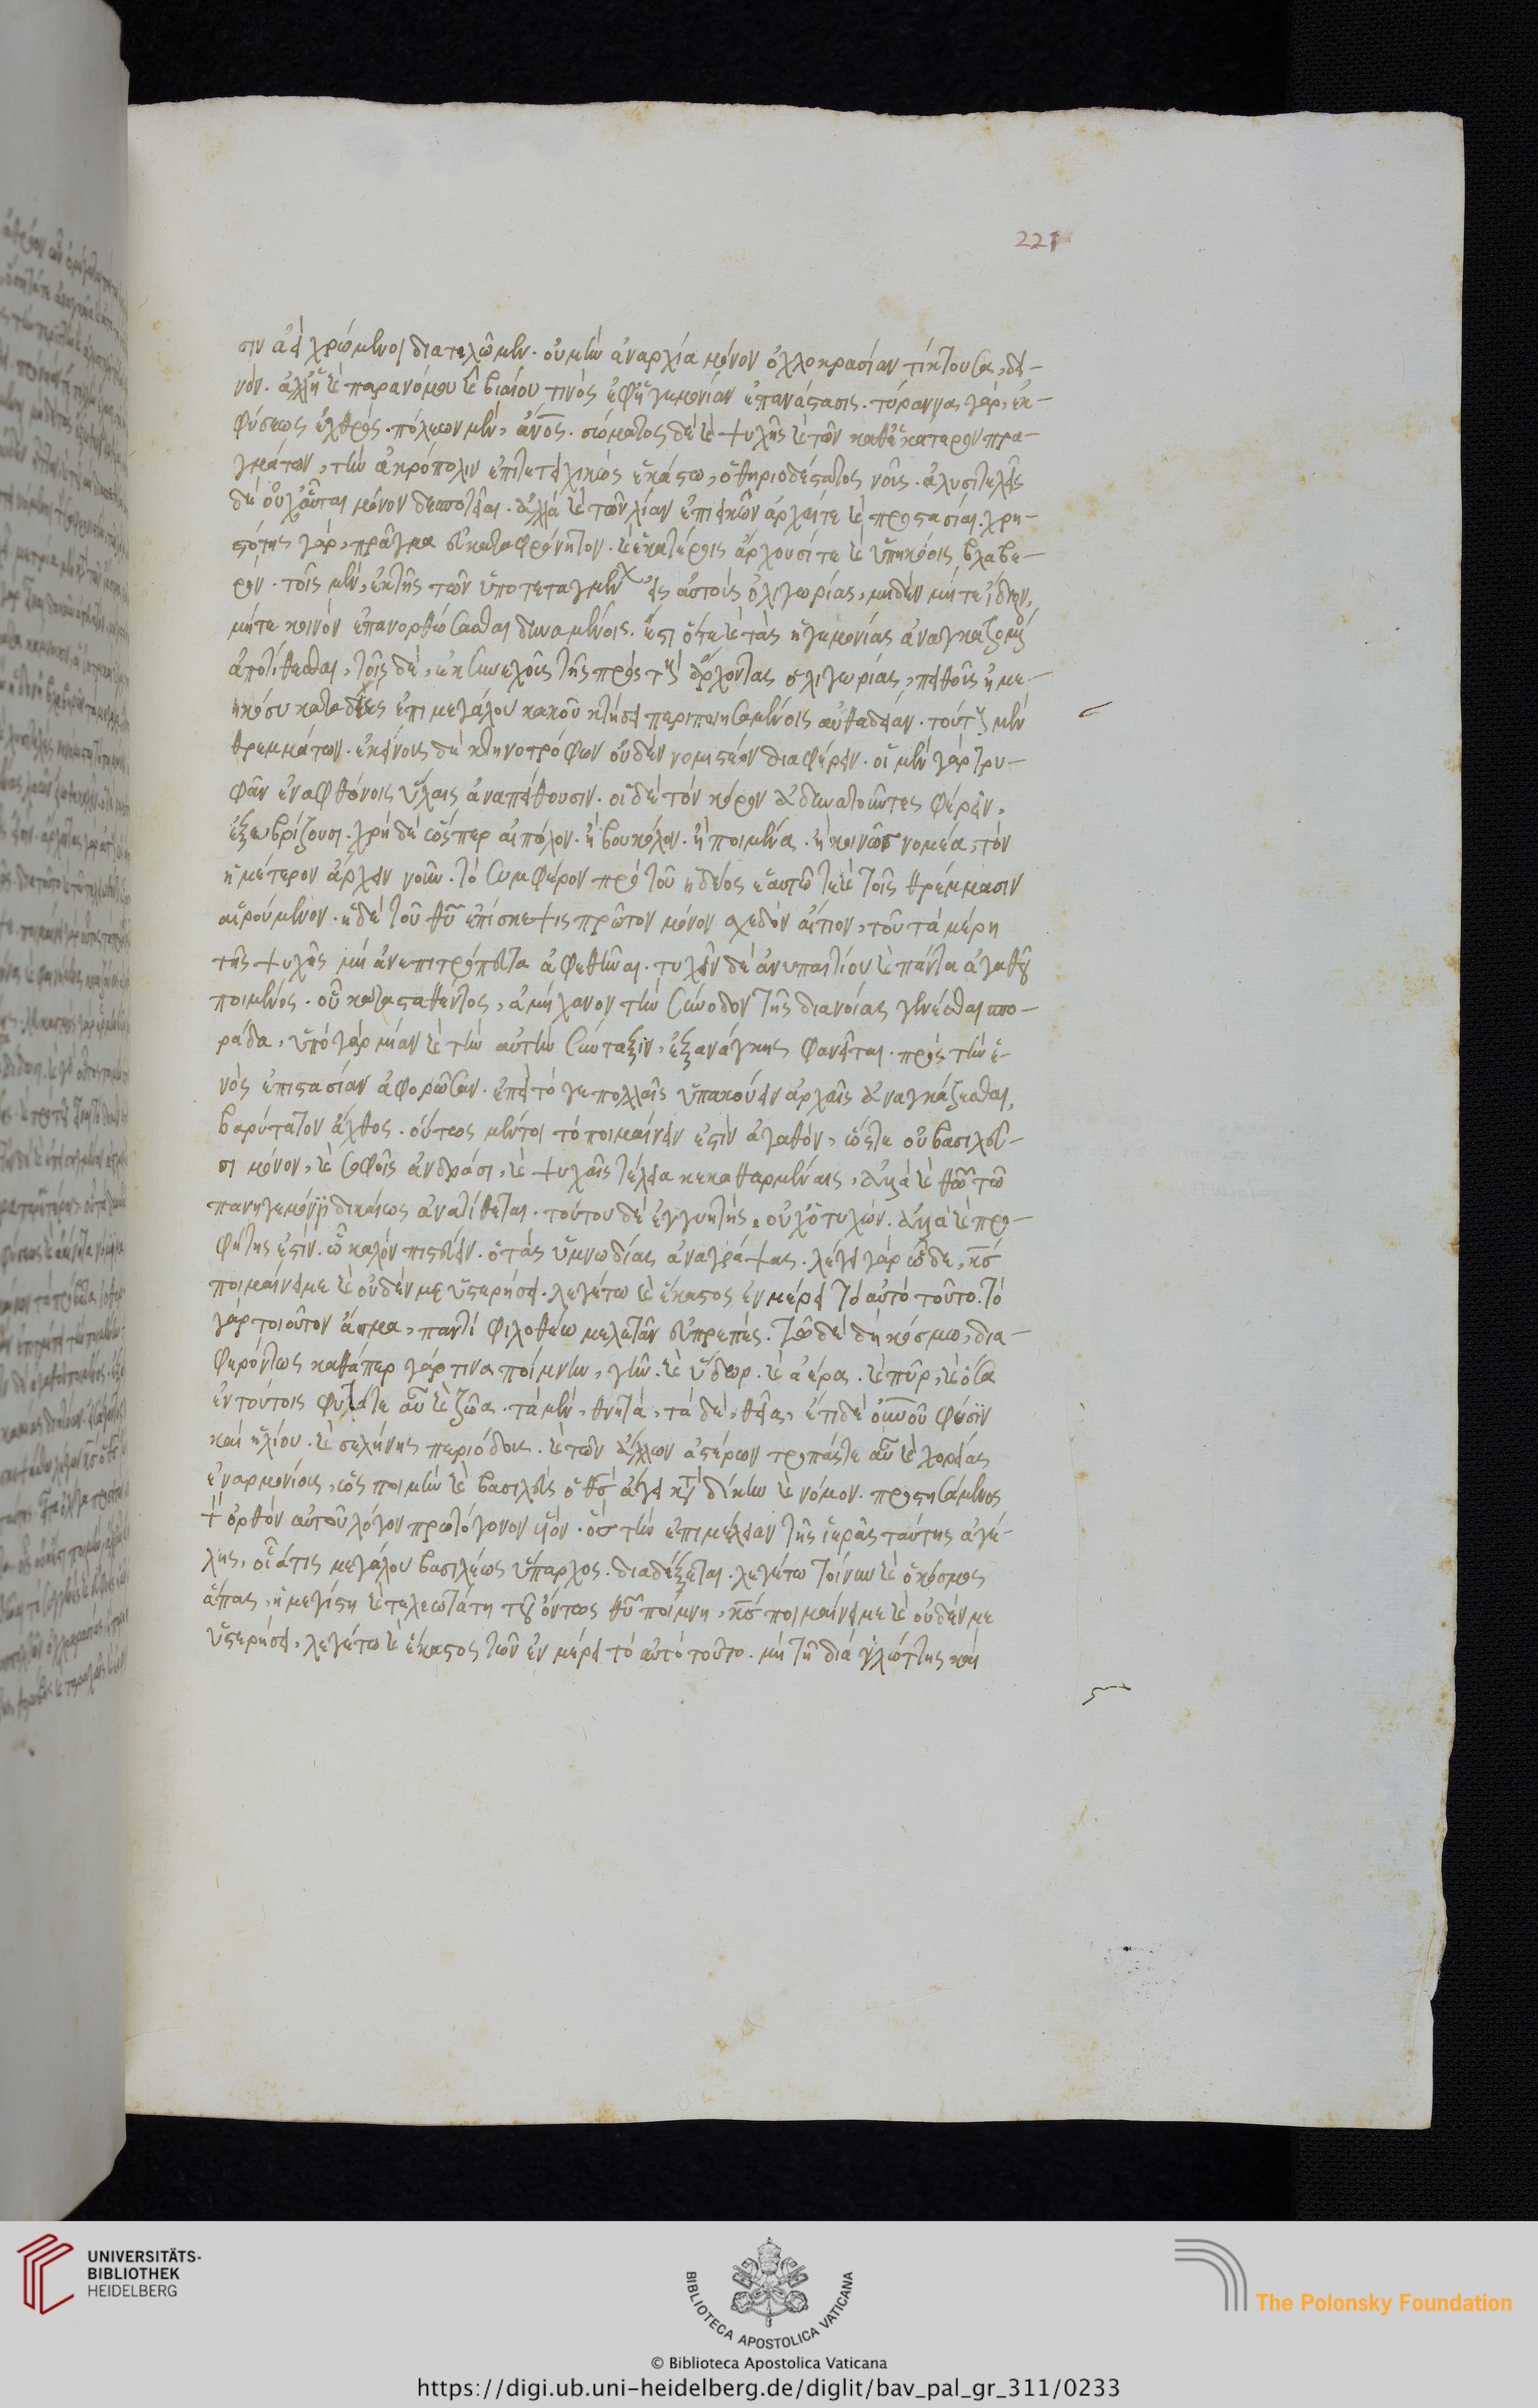 221
σιν ἀεὶ χρώμενοι διατελῶμεν. οὐ μὴν ἀναρχία μόνον ὀχλοκρασίαν τίκτουσα, δει-
νόν. ἀλλ' ἡ καὶ παρανόμου καὶ βιαίου τινὸς ἐφ' ἡγεμονίαν ἐπανάστασις. τύραννος γὰρ, ἐκ
φύσεως ἐχθρός. πόλεων μὲν, ἄνος. σώματος δὲ καὶ ψυχῆς καὶ τῶν καθ' ἑκάτερον πρα-
γμάτων, τὴν ἀκρόπολιν ἐπιτετειχικὼς ἑκάστω, ὁ θηριοδέστατος νοῦς. ἀλυσιτελεῖς
δὲ οὐχ' αὗται μόνον δεσποτεῖαι. ἀλλὰ καὶ τῶν λίαν ἐπιεικῶν ἀρχαί τε καὶ προστασίαι. χρη-
στότης γὰρ, πρᾶγμα εὐκαταφρόνητον. καὶ ἑκατέροις ἄρχουσί τε καὶ ὑπηκόοις βλαβε-
ρόν. τοῖς μὲν, ἐκ τῆς τῶν ὑποτεταγμένων εἰς αὐτοὺς ὀλιγωρίας, μηδὲν μήτε ἴδιον,
μήτε κοινὸν ἐπανορθώσασθαι δυναμένοις. ἔστι ὅτε καὶ τὰς ἡγεμονίας ἀναγκαζομένοις
ἀποτίθεσθαι, τοῖς δὲ, ἐκ συνεχοῦς τῆς πρὸς τοὺς ἄρχοντας ὀλιγωρίας, πειθοῦς ἠμε-
ληκόσι ἐπὶ μεγάλου κακοῦ κτήσει περιποιησαμένοις αὐθάδειαν. τούτους μὲν
θρεμμάτων. ἐκείνους δὲ κτηνοτρόφων οὐδὲν νομιστέον διαφέρειν. οἱ μὲν γὰρ τρυ-
φᾶν ἐν ἀφθόνοις ὕλαις ἀναπείθουσιν. οἱ δὲ τὸν κόρον ἀδυνατοῦντες φέρειν,
ἐξευβρίζουσι. χρὴ δὲ ὥσπερ αἰπόλον. ἢ βουκόλον. ἢ ποιμένα. ἢ κοινῶς νομέα, τὸν
ἡμέτερον ἄρχειν νοῦν. τὸ συμφέρον πρὸ τοῦ ἡδέος ἑαυτῶ τε καὶ τοῖς θρέμμασιν
αἱρούμενον. ἡ δὲ τοῦ θυ ἐπίσκεψις πρῶτον μόνον σχεδὸν αἴτιον, τοῦ τὰ μέρη
τῆς ψυχῆς μὴ ἀνεπιτρόπευτα ἀφεθῆναι. τυχεῖν δὲ ἀνυπαιτίου καὶ πάντα ἀγαθοῦ
ποιμένος. οὗ κατασταθέντος, ἀμήχανον τὴν σύνοδον τῆς διανοίας γενέσθαι σπο-
ράδα, ὑπὸ γὰρ μίαν καὶ τὴν αὐτὴν σύνταξιν, ἐξανάγκης φανεῖται. πρὸς τὴν ἑ-
νὸς ἐπιστασίαν ἀφορῶσαν. ἐπεὶ τό γε πολλαῖς ὑπακούειν ἀρχαῖς ἀναγκάζεσθαι,
βαρύτατον ἄχθος. οὕτως μέντοι τὸ ποιμαίνειν ἐστὶν ἀγαθὸν, ὥστε οὐ βασιλεῦ-
σι μόνον, καὶ σοφοῖς ἀνδράσι, καὶ ψυχαῖς τέλεια κεκαθαρμέναις, ἀλλὰ καὶ θῶ τῶ
πανηγεμόνι δικαίως ἀνατίθεται. τούτου δὲ ἐγγυητὴς, οὐχ' ὁ τυχών. ἀλλὰ καὶ προ-
φήτης ἐστίν. ᾧ καλὸν πιστεύειν. ὁ τὰς ὑμνωδίας ἀναγράψας. λέγει γὰρ ὧδε, κς
ποιμαίνει με καὶ οὐδέν με ὑστερήσει. λεγέτω καὶ ἕκαστος ἐν μέρει τὸ αὐτὸ τοῦτο. τὸ
γὰρ τοιοῦτον ᾆσμα, παντὶ φιλοθέω μελετᾶν εὐπρεπές. τῶ δὲ δὴ κόσμω, δια-
φερόντως καθάπερ γάρ τινα ποίμνην, γῆν. καὶ ὕδωρ. καὶ ἀέρα. καὶ πῦρ, καὶ ὅσα
ἐν τούτοις φυτά τε αὖ καὶ ζῶα. τὰ μὲν, θνητὰ, τὰ δὲ, θεῖα, ἔτι δὲ οὐνοῦ φύσιν
καὶ ἡλίου. καὶ σελήνης περιόδους. καὶ τῶν ἄλλων ἀστέρων τροπάς τε αὖ καὶ χορείας
ἐναρμονίους, ὡς ποιμὴν καὶ βασιλεὺς ὁ θς ἄγει κατὰ δίκην καὶ νόμον. προστησάμενος
τὸν ὀρθὸν αὐτοῦ λόγον πρωτόγονον υἱόν. ὃς τὴν ἐπιμέλειαν τῆς ἱερᾶς ταύτης ἀγέ-
λης, οἷά τις μεγάλου βασιλέως ὕπαρχος. διαδέξεται. λεγέτω τοίνυν καὶ ὁ κόσμος
ἅπας, ἡ μεγίστη καὶ τελεωτάτη τοῦ ὄντως θυ ποίμνη, κς ποιμαίνει με καὶ οὐδέν με
ὑστερήσει, λεγέτω καὶ ἕκαστος τῶν ἐν μέρει τὸ αὐτὸ τοῦτο. μὴ τῆ διὰ γλώττης καὶ
UNIVERSITÄTS-
BIBLIOTHEK
HEIDELBERG
BIBLIOTECA APOSTOLICA VATICANA
The Polonsky Foundation
© Biblioteca Apostolica Vaticana
https://digi.ub.uni-heidelberg.de/diglit/bav_pal_gr_311/0233